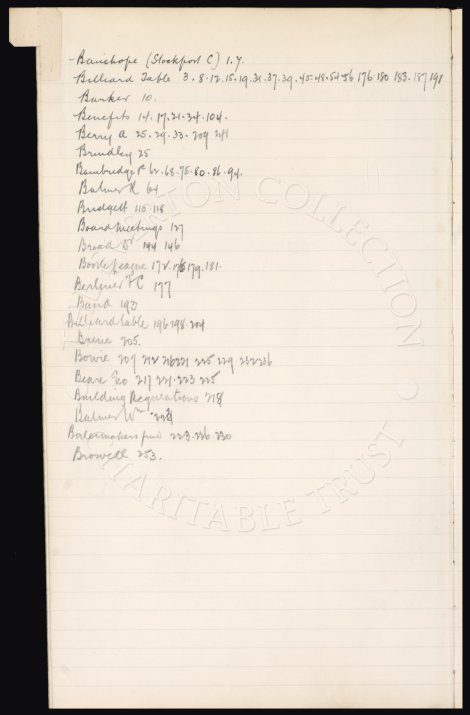 Bainhope (Stockport C) 1.7.
Billiard Table 3.8.12.15.19.31.37.39.45.48.54.56 176.180 183.187 191
Bunker 10.
Benefits 14.17.21.24.104.
Berry A 25.29.33.209 211
Brindley 25
Bambridge 62.68.75.80.86.94.
Balmer R 64
Bridgett 115.118
Board Meetings 127
Broad Dr 144 146
Boode League 172.176 179.181.
Berliner F C 177
Band 193
Billiard table 196 198.204
Brene 205.
Bowie 207 212 216 221 225 229 232 236
Beare Geo 217 221.223 225
Building Regulations 218
Balmer Wm 228
Boilermakers fund 223.226 230
Browell 253.
THE EVERTON COLLECTION
CHARITABLE TRUST